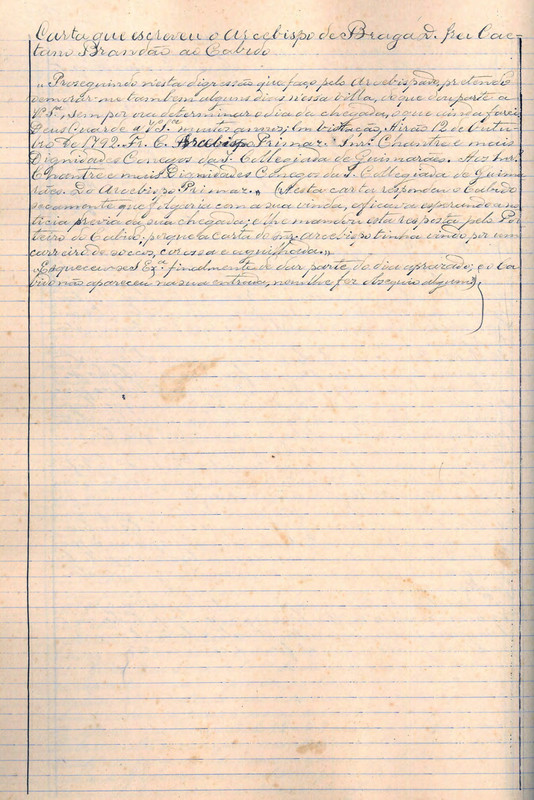 Carta que escreveu o Arcebispo de Braga D. frei Cae-
tano Brandão ao Cabido
"Proseguindo n'esta digressão que faço pelo Arcebispado, pretendo
demorar-me tambem alguns dias n'essa villa, do que dou parte a
V.S.ª, sem por ora determinar o dia da chegada, o que ainda farei.
Deus Guarde a V.S.ª muitos annos; Em visitação, Airão 12 de Outu-
bro de 1792. Fr. C. Arcebispo Primaz. Snr. Chantre e mais
Dignidades Conegos da I. Collegiada de Guimarães. Aos Snr.
Chantre e mais Dignidades Conegos da I. Collegiada de Guima-
rães. Do Arcebispo Primaz." (A esta carta respondeu o Cabido
seccamente que folgaria com a sua vinda, e ficava esperando a no-
ticia previa da sua chegada; e lhe mandou esta resposta pelo Por-
teiro do Cabido, porque a carta do snr. Arcebispo tinha vindo por um
carreiro de soccos, corossa e aguilhada."
Esqueceu-se S. Ex.ª finalmente de dar parte do dia aprazado; e o Ca-
bido não appareceu na sua entrada, nem lhe fez obsequio algum).